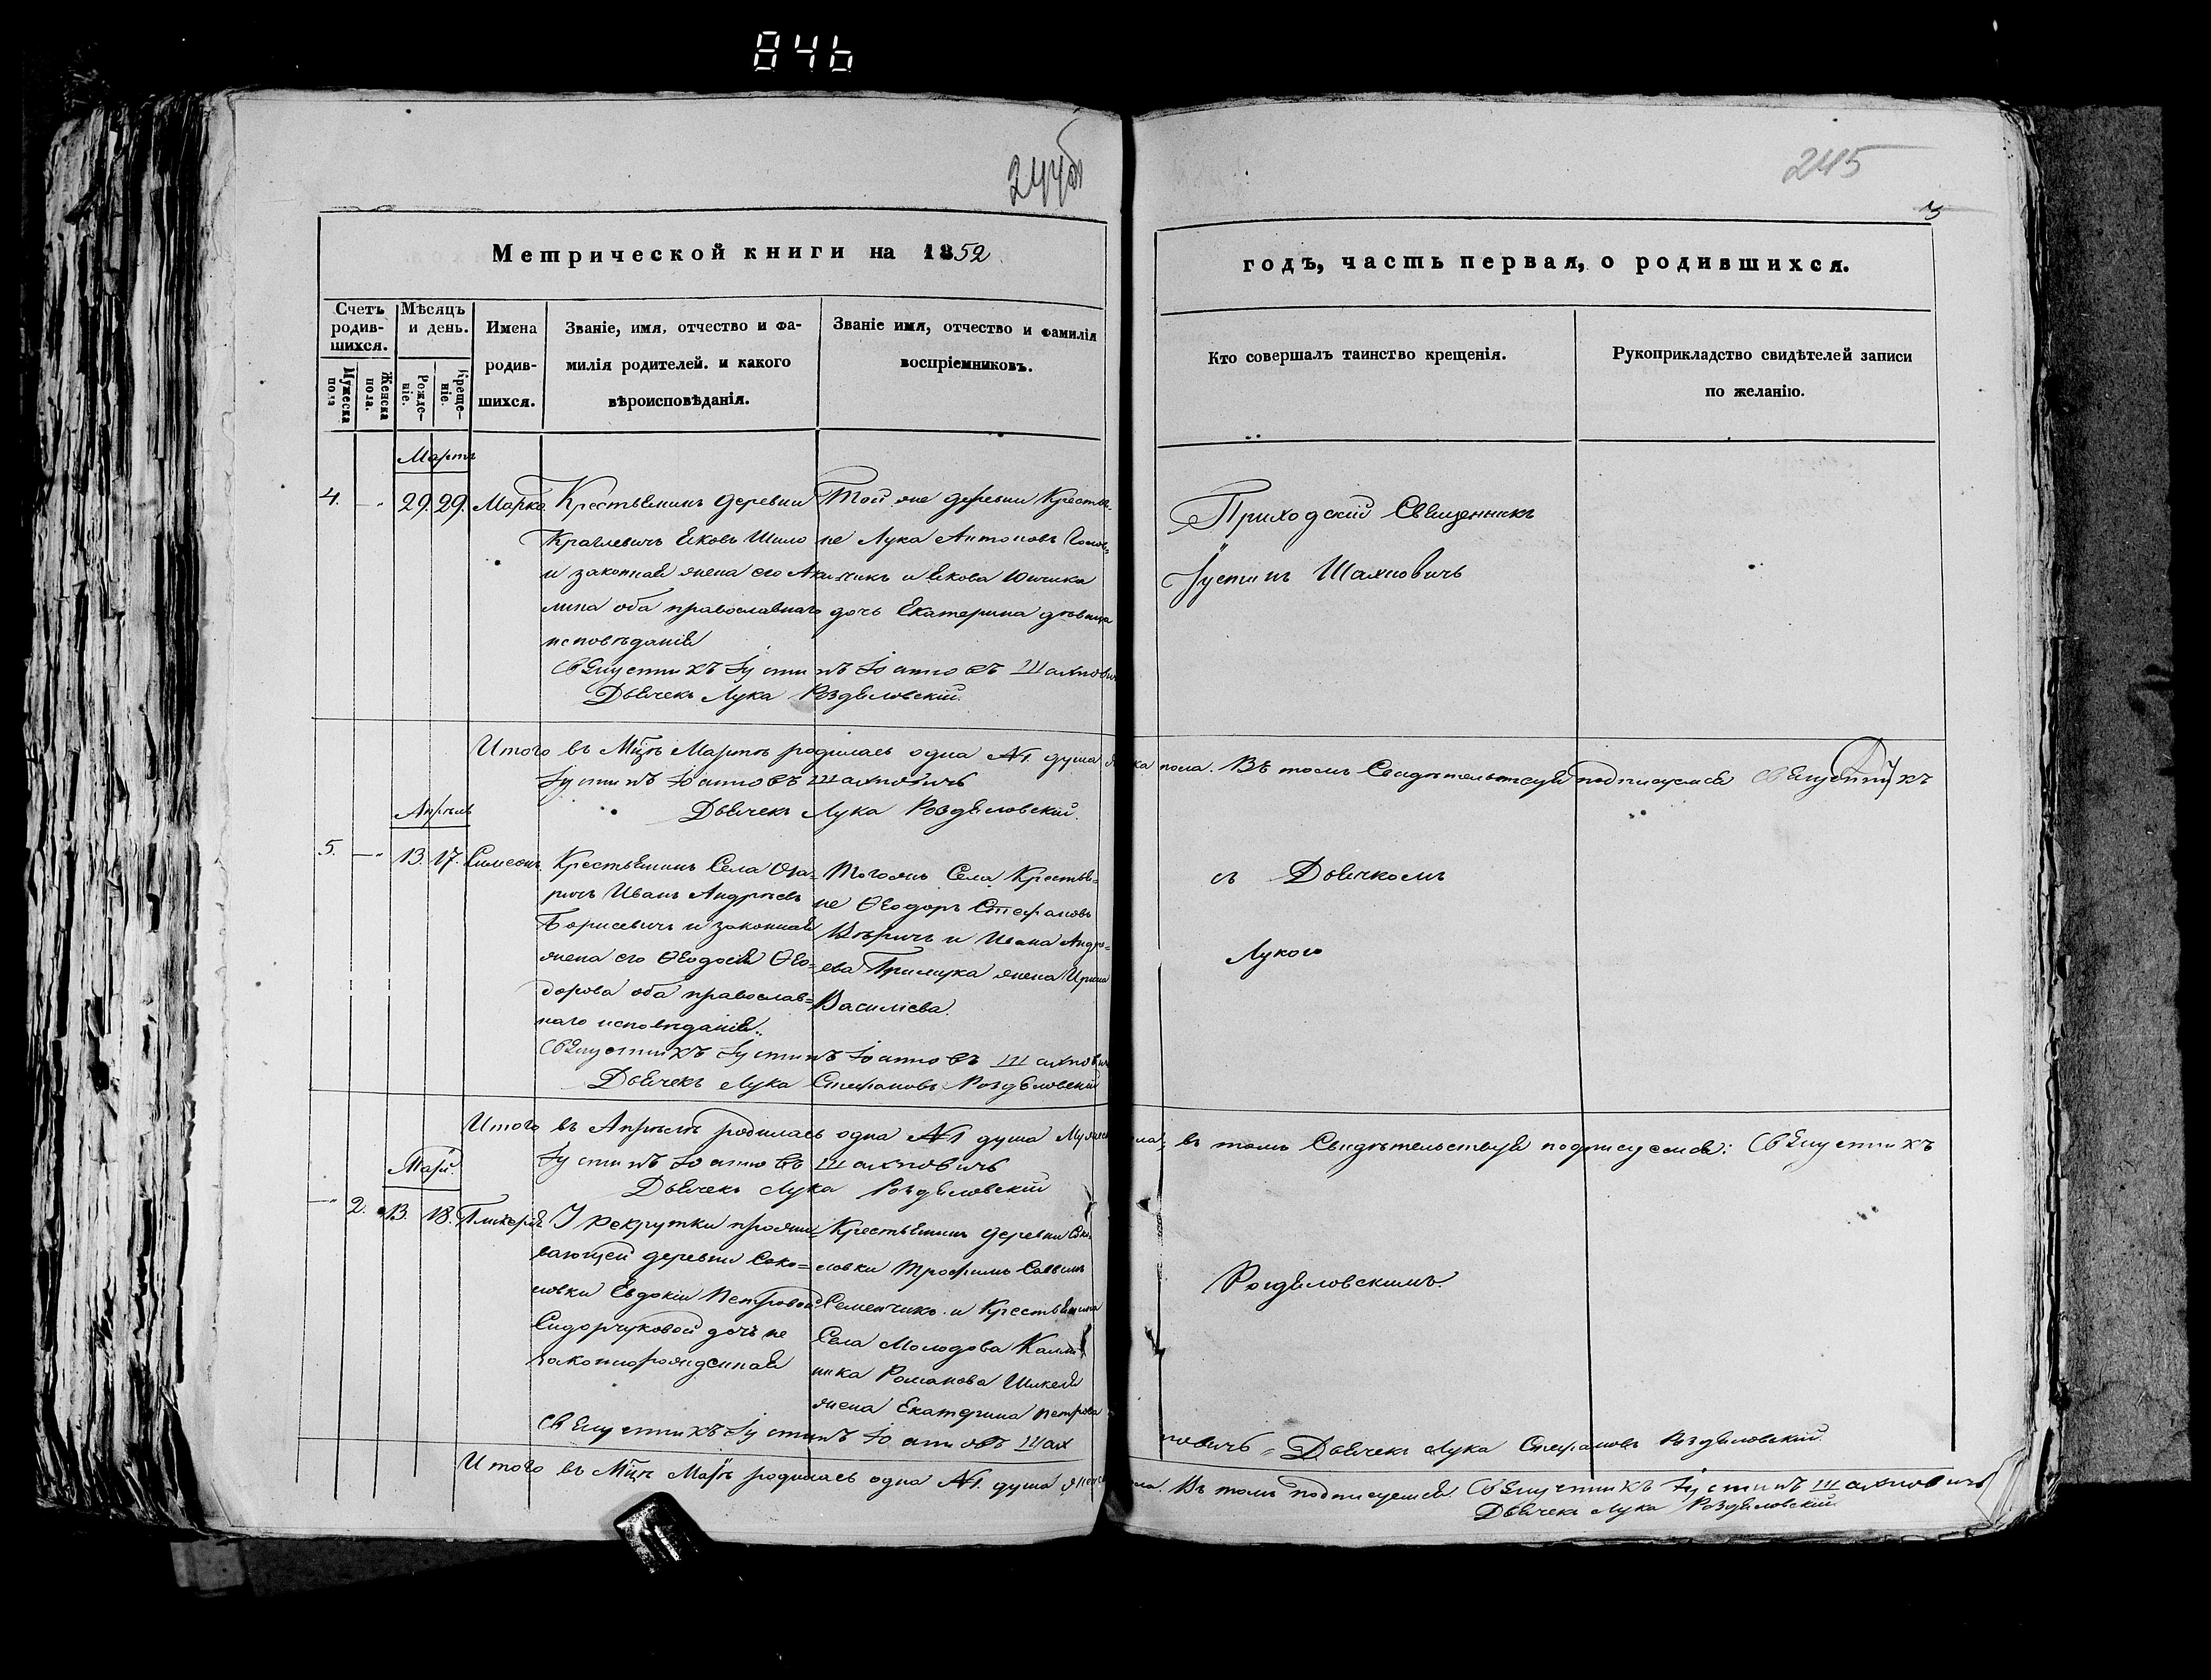 846
244об
245
3
Метрической книги на 1852
годъ, часть первая, о родившихся.
Счетъ родив-шихся.
Мужеска пола
Женска пола.
Мѣсяцъ и день.
Рожде-ніе.
Креще-ніе.
Имена
родив-
шихся.
Званіе, имя, отчество и фа-
милія родителей. и какого
вѣроисповѣданія.
Званіе имя, отчество и фамилія
воспріемниковъ.
Кто совершалъ таинство крещенія.
Рукоприкладство свидѣтелей записи
по желанію.
Мартъ
4. - 29. 29. Марко
Крестьянинъ деревни
Яковъ Шило
и законная жена его Аки-
лина оба православнаго
исповѣданія
Той же деревни Крестья-
не Лука Антоновъ
и Якова
дочь Екатерина дѣвица
Священникъ Іустинъ Іоанновъ Шахнович
Дьячекъ Лука Роздяловскій.
Приходскій Священникъ
Іустинъ Шахновичъ
Итого въ Мцѣ Мартѣ родилась одна №1. душа
ка пола. Въ томъ Свидѣтельствуя подписуемся Священникъ
Іустинъ Іоанновъ Шахновичъ
Дьячекъ Лука Роздяловскій.
Апрѣль
5. - 13. 17. Симеонъ.
Крестьянинъ Села Оза-
ричъ Иванъ Андреевъ
Борисевичъ и законная
жена его Ѳеодосія Ѳео-
дорова оба православ-
наго исповѣданія.
Тогожъ Села Крестья-
не Ѳеодоръ Стефановъ
и Ивана Андре-
ева жена Ирина
Василіева.
Священникъ Іустинъ Іоанновъ Шахнович
Дьячекъ Лука Стефановъ Роздяловскій
съ Дьячкомъ
Лукою
Итого въ Апрѣлѣ родилась одна №1 душа Мужеск
ла; въ томъ Свидѣтельствуя подписуемся: Священникъ
Іустинъ Іоанновъ Шахновичъ
Дьячекъ Лука Роздяловскій
Май.
- 2. 13. 18. Гликерія
У рекрутки прожи-
вающей деревни Соко-
ловки Евдокіи Петровой
Сидорчуковой дочь не
законнорожденная
Крестьянинъ деревни Соко-
ловки Трофимъ Саввинъ
Семенчико и Крестьянина
Села Молодова Калли-
ника Романова
жена Екатерина Петрова
Роздяловскимъ
Священникъ Іустинъ Іоанновъ Шах
новичъ Дьячекъ Лука Стефановъ Роздяловскій.
Итого въ Мцѣ Маѣ родилась одна №1. душа
ла. Въ томъ подписуемся. Священникъ Іустинъ Шахновичъ
Дьячекъ Лука Роздяловскій